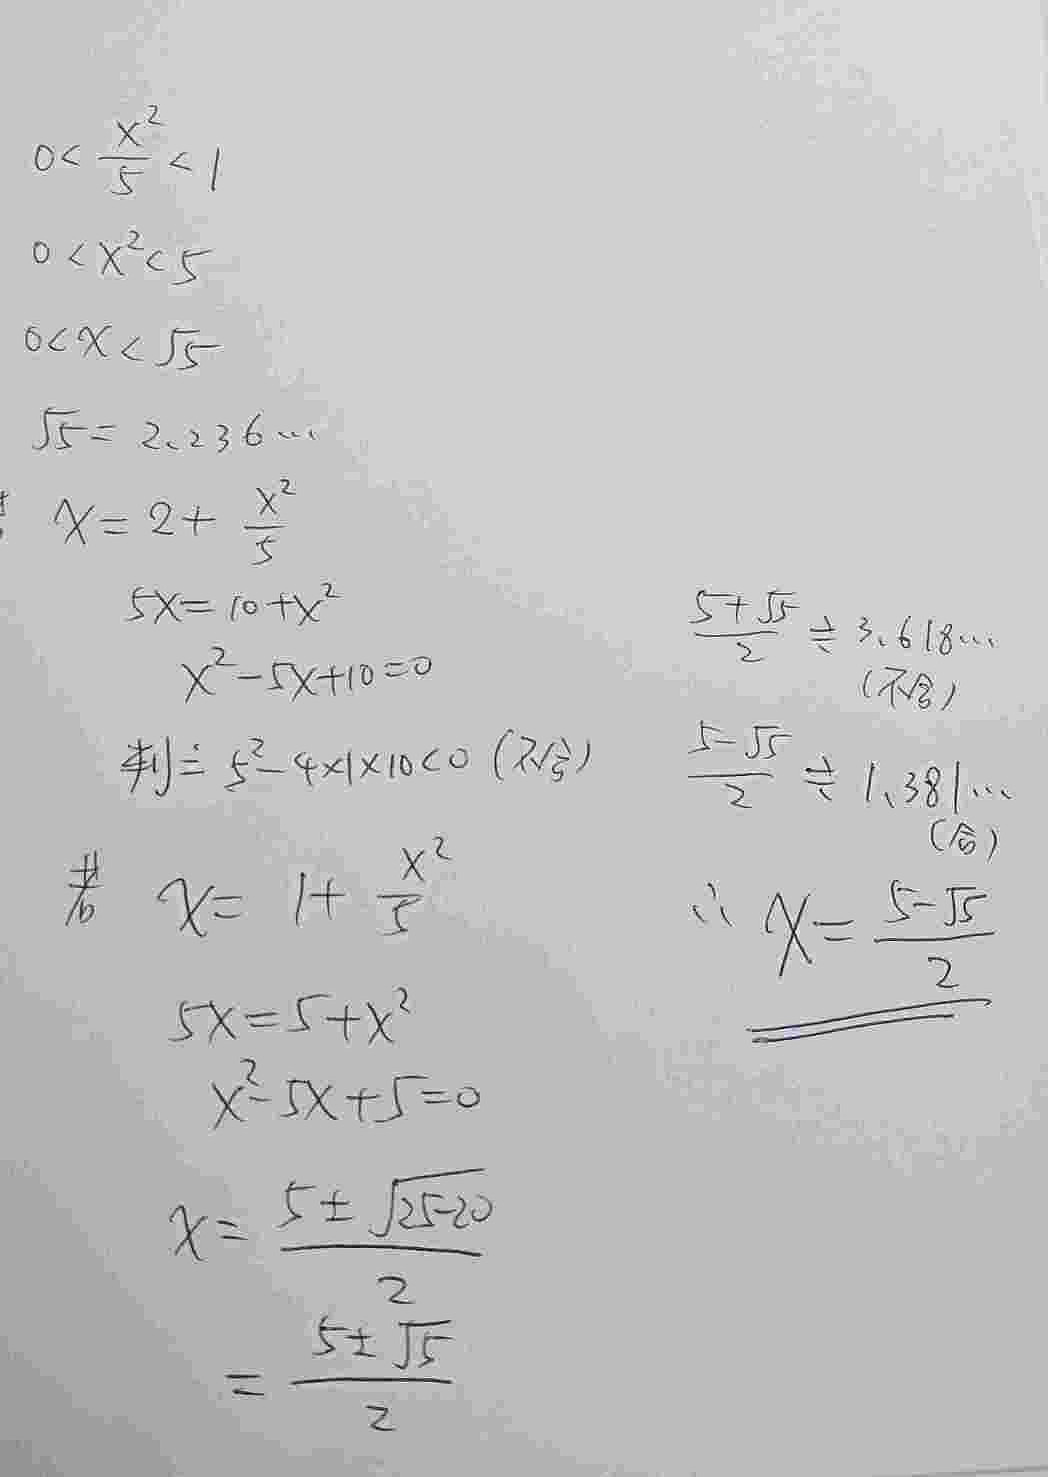 0< x²/5 <1
0<x²<5
0<x<√5
√5=2.236…
若 x=2+ x²/5
5x=10+x²
x²-5x+10=0
判=5²-4×1×10<0 (不合)
若 x=1+ x²/5
5x=5+x²
x²-5x+5=0
x= (5±√(25-20))/2
= (5±√5)/2
(5+√5)/2 ≒ 3.618…
(不合)
(5-√5)/2 ≒ 1.381…
(合)
∴ x= (5-√5)/2